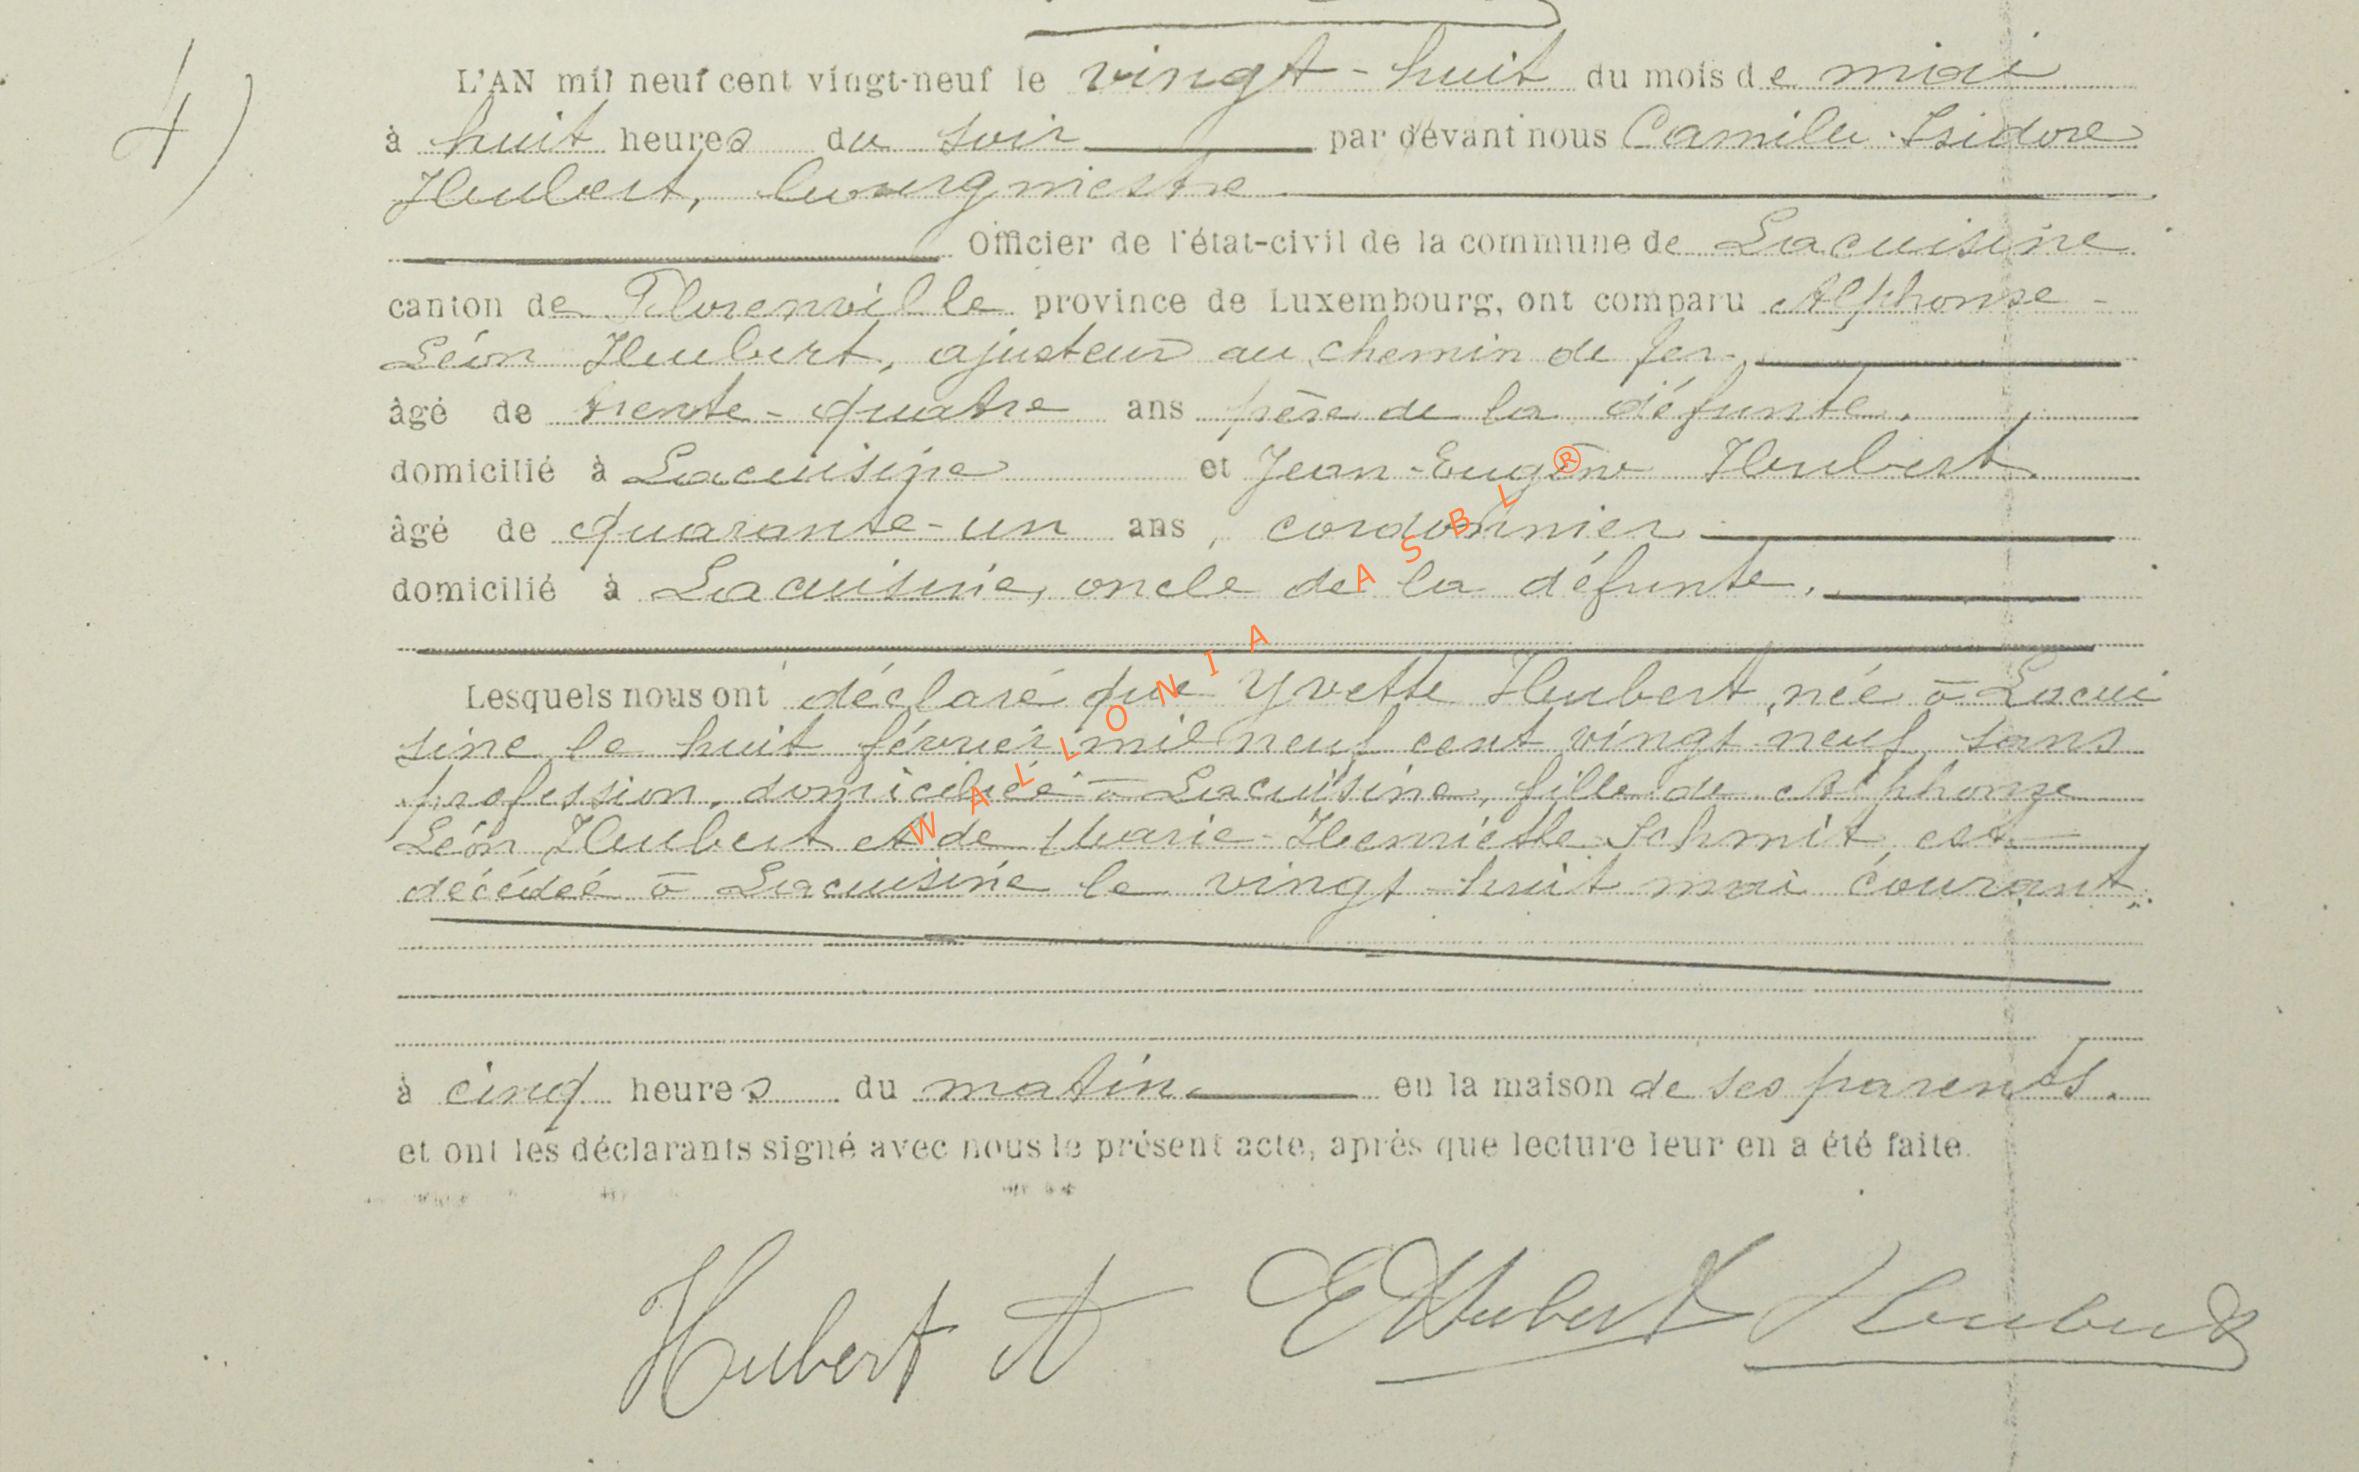 4)
L'AN mil neuf cent vingt-neuf le vingt-huit du mois de mai
à huit heures du soir par devant nous Camille-Isidore
Hubert, bourgmestre
Officier de l'état-civil de la commune de Lacuisine
canton de Florenville province de Luxembourg, ont comparu Alphonse-
Léon Hubert, ajusteur au chemin de fer.
âgé de trente-quatre ans père de la défunte.
domicilié à Lacuisine et Jean-Eugène Hubert
âgé de quarante-un ans, cordonnier
domicilié à Lacuisine, oncle de la défunte.
Lesquels nous ont déclaré que Yvette Hubert, née à Lacui
sine le huit février mil neuf cent vingt-neuf, sans
profession, domiciliée à Lacuisine, fille de Alphonse
Léon Hubert et de Marie-Henriette Schmit est
décédée à Lacuisine le vingt-huit mai courant,
à cinq heures du matin en la maison de ses parents.
et ont les déclarants signé avec nous le présent acte, après que lecture leur en a été faite.
Hubert A EHubert Hubert
WALLONIA ASBL ®